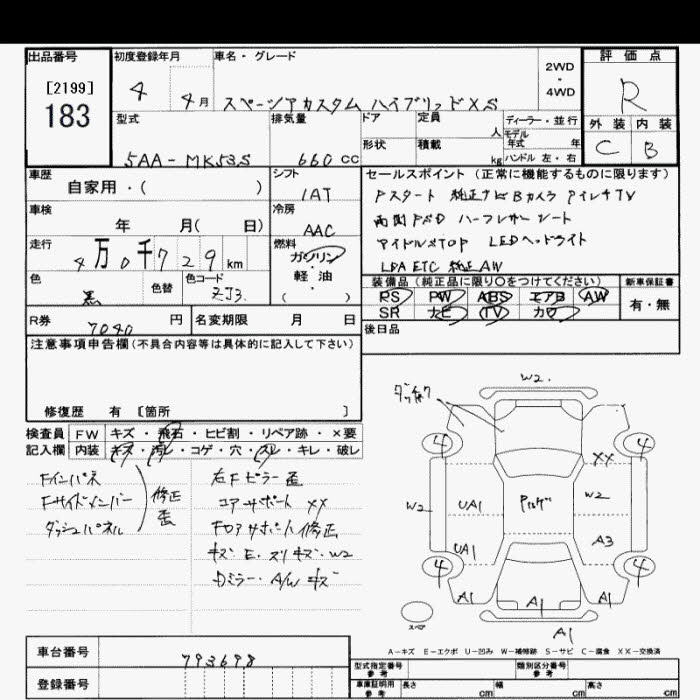 出品番号
[2199]
183
初度登録年月
4 4月
車名・グレード
スペーシアカスタム ハイブリッドXS
2WD
・
4WD
評価点
R
外装 内装
C B
型式
5AA-MK53S
排気量
660cc
ドア
形状
定員
人
積載
kg
ディーラー・並行
モデル
年式 年
ハンドル 左・右
車歴
自家用・( )
シフト
IAT
車検
年 月( 日)
冷房
AAC
走行
4万0千729km
燃料
ガソリン
・
軽油
・
( )
色
黒
色替
色コード
ZJ3
セールスポイント (正常に機能するものに限ります)
Pスタート 純正ナビBカメラ アイレチTV
両側PSD ハーフレザーシート
アイドルSTOP LEDヘッドライト
LDA ETC 純正AW
装備品 (純正品に限り○をつけてください)
PS PW ABS エアB AW
SR ナビ TV カワ
新車保証書
有・無
R券
7040円
名変期限 月 日
後日品
注意事項申告欄(不具合内容等は具体的に記入して下さい)
修復歴 有 [箇所 ]
検査員
記入欄
FW キズ・飛石・ヒビ割・リペア跡・×要
内装 キズ・汚レ・コゲ・穴・スレ・キレ・破レ
Fインパネ
Fサイドメンバー
ダッシュパネル
修正
歪
右Fピラー 歪
コアサポート XX
Fロアサポート修正
キズ・E・スリキズ・W2
Dミラー・A/Wキズ
W2
4 4
XX
W2 UA1 W2
UA1 A3
4 4
A1 A1 A1
A1
スペア
A-キズ E-エクボ U-凹み W-補修跡 S-サビ C-腐食 XX-交換済
車台番号
793698
登録番号
型式指定番号
参考
類別区分番号
参考
車庫証明用
参考
長さ cm 幅 cm 高さ cm